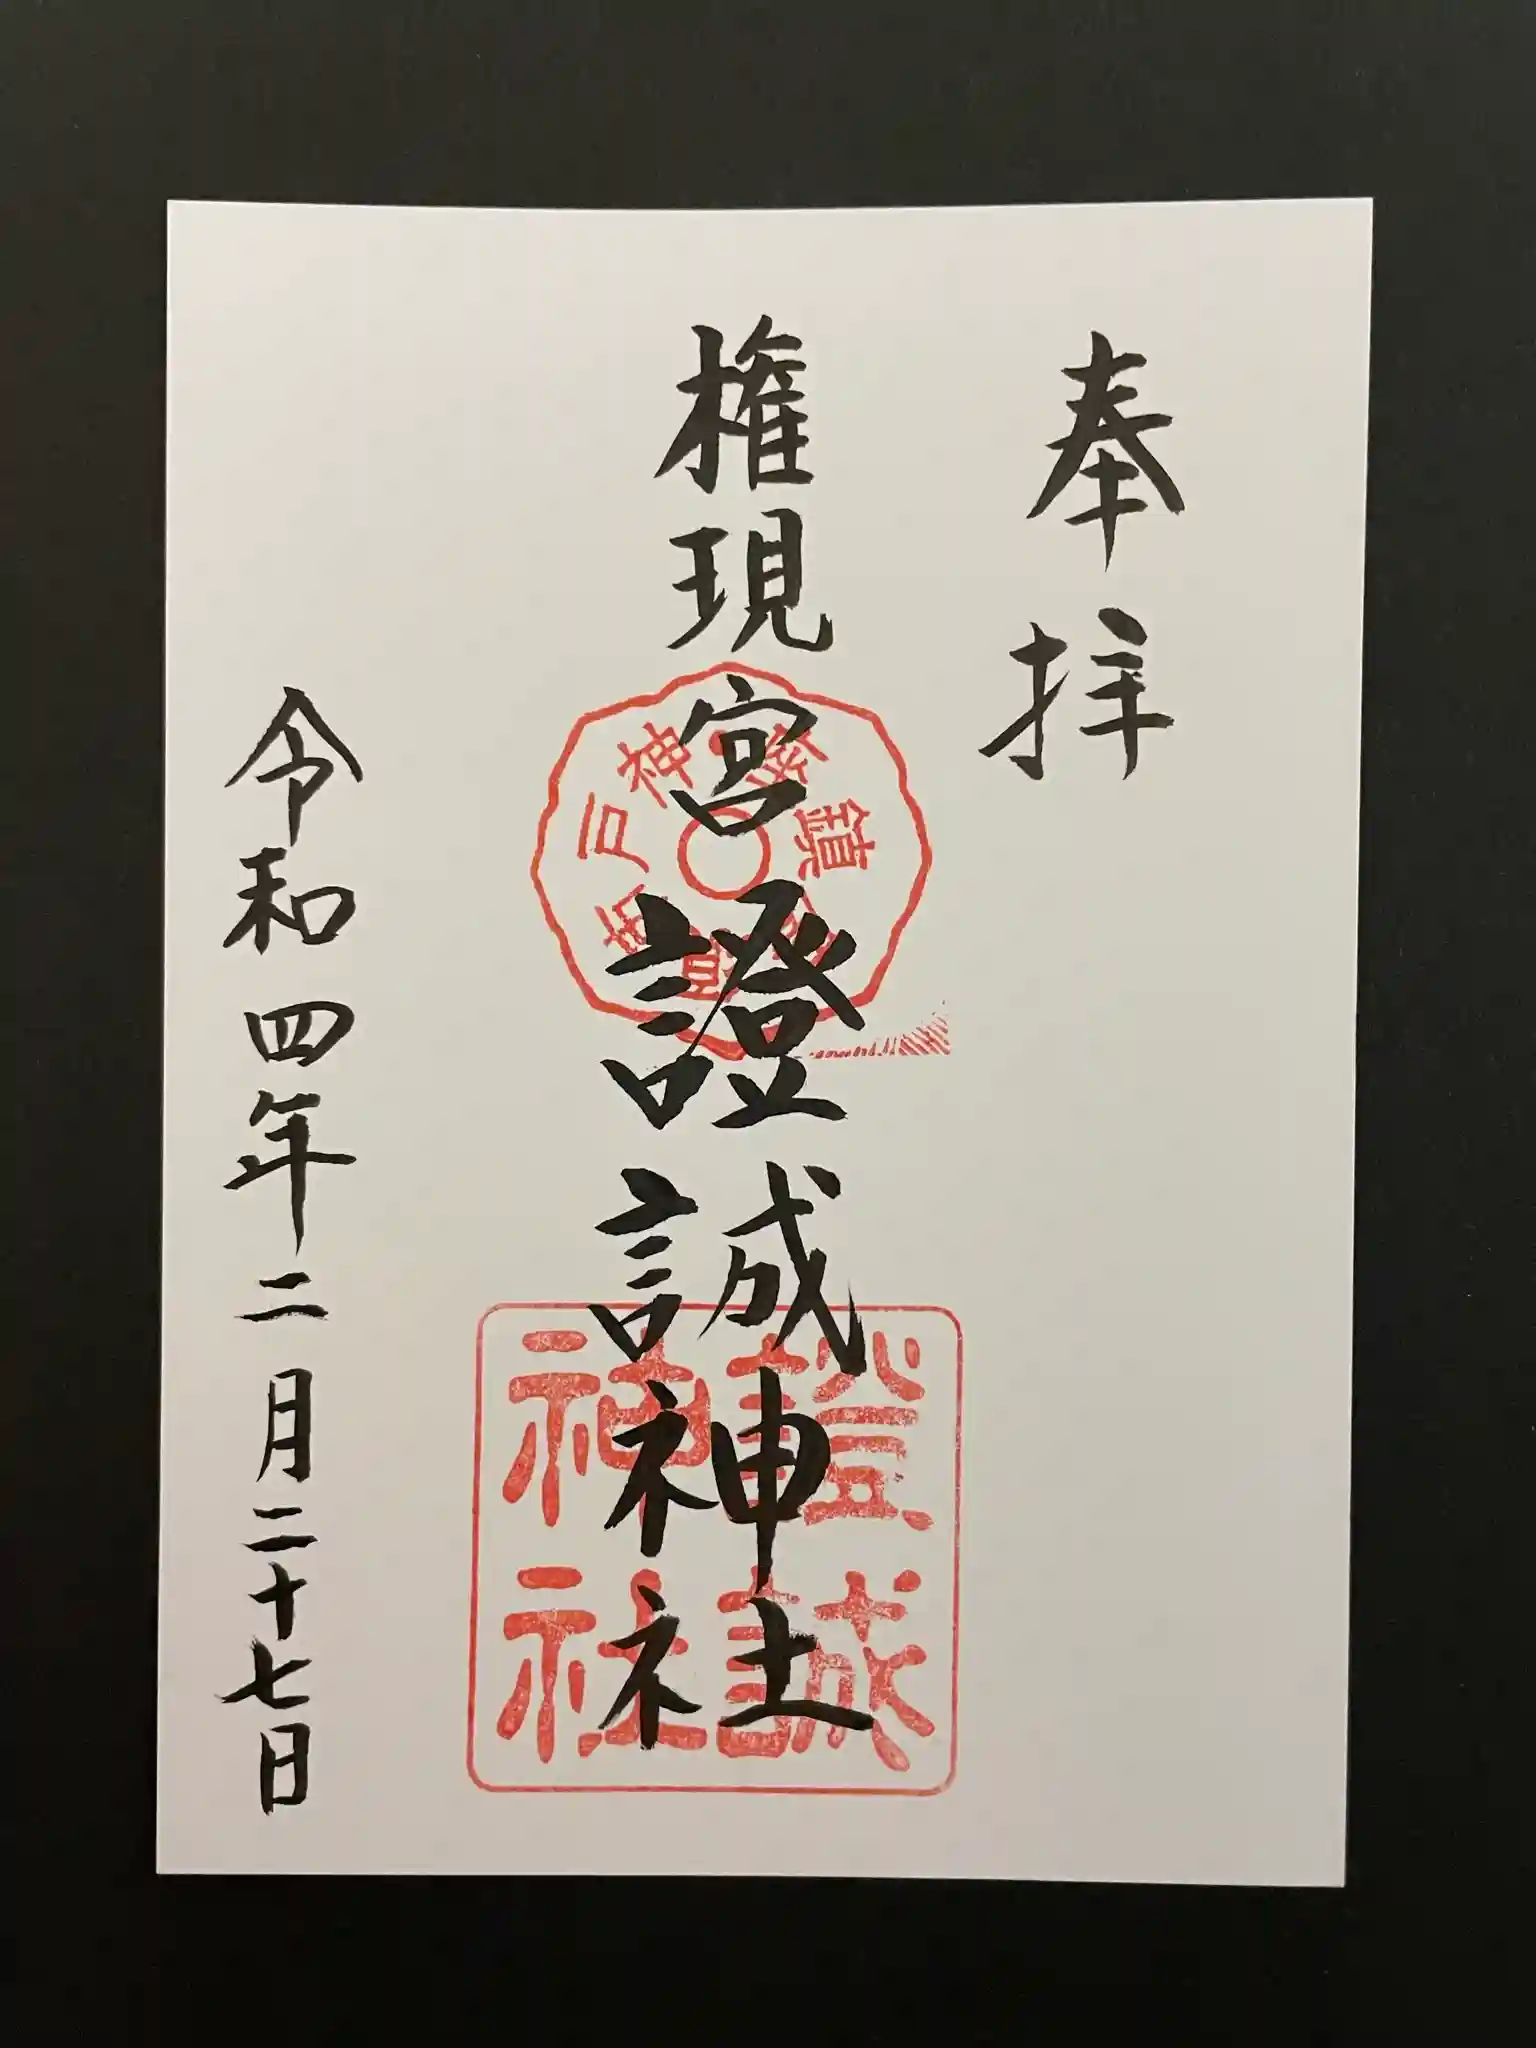 奉拝
権現宮 證誠神社
令和四年二月二十七日
證誠
神社